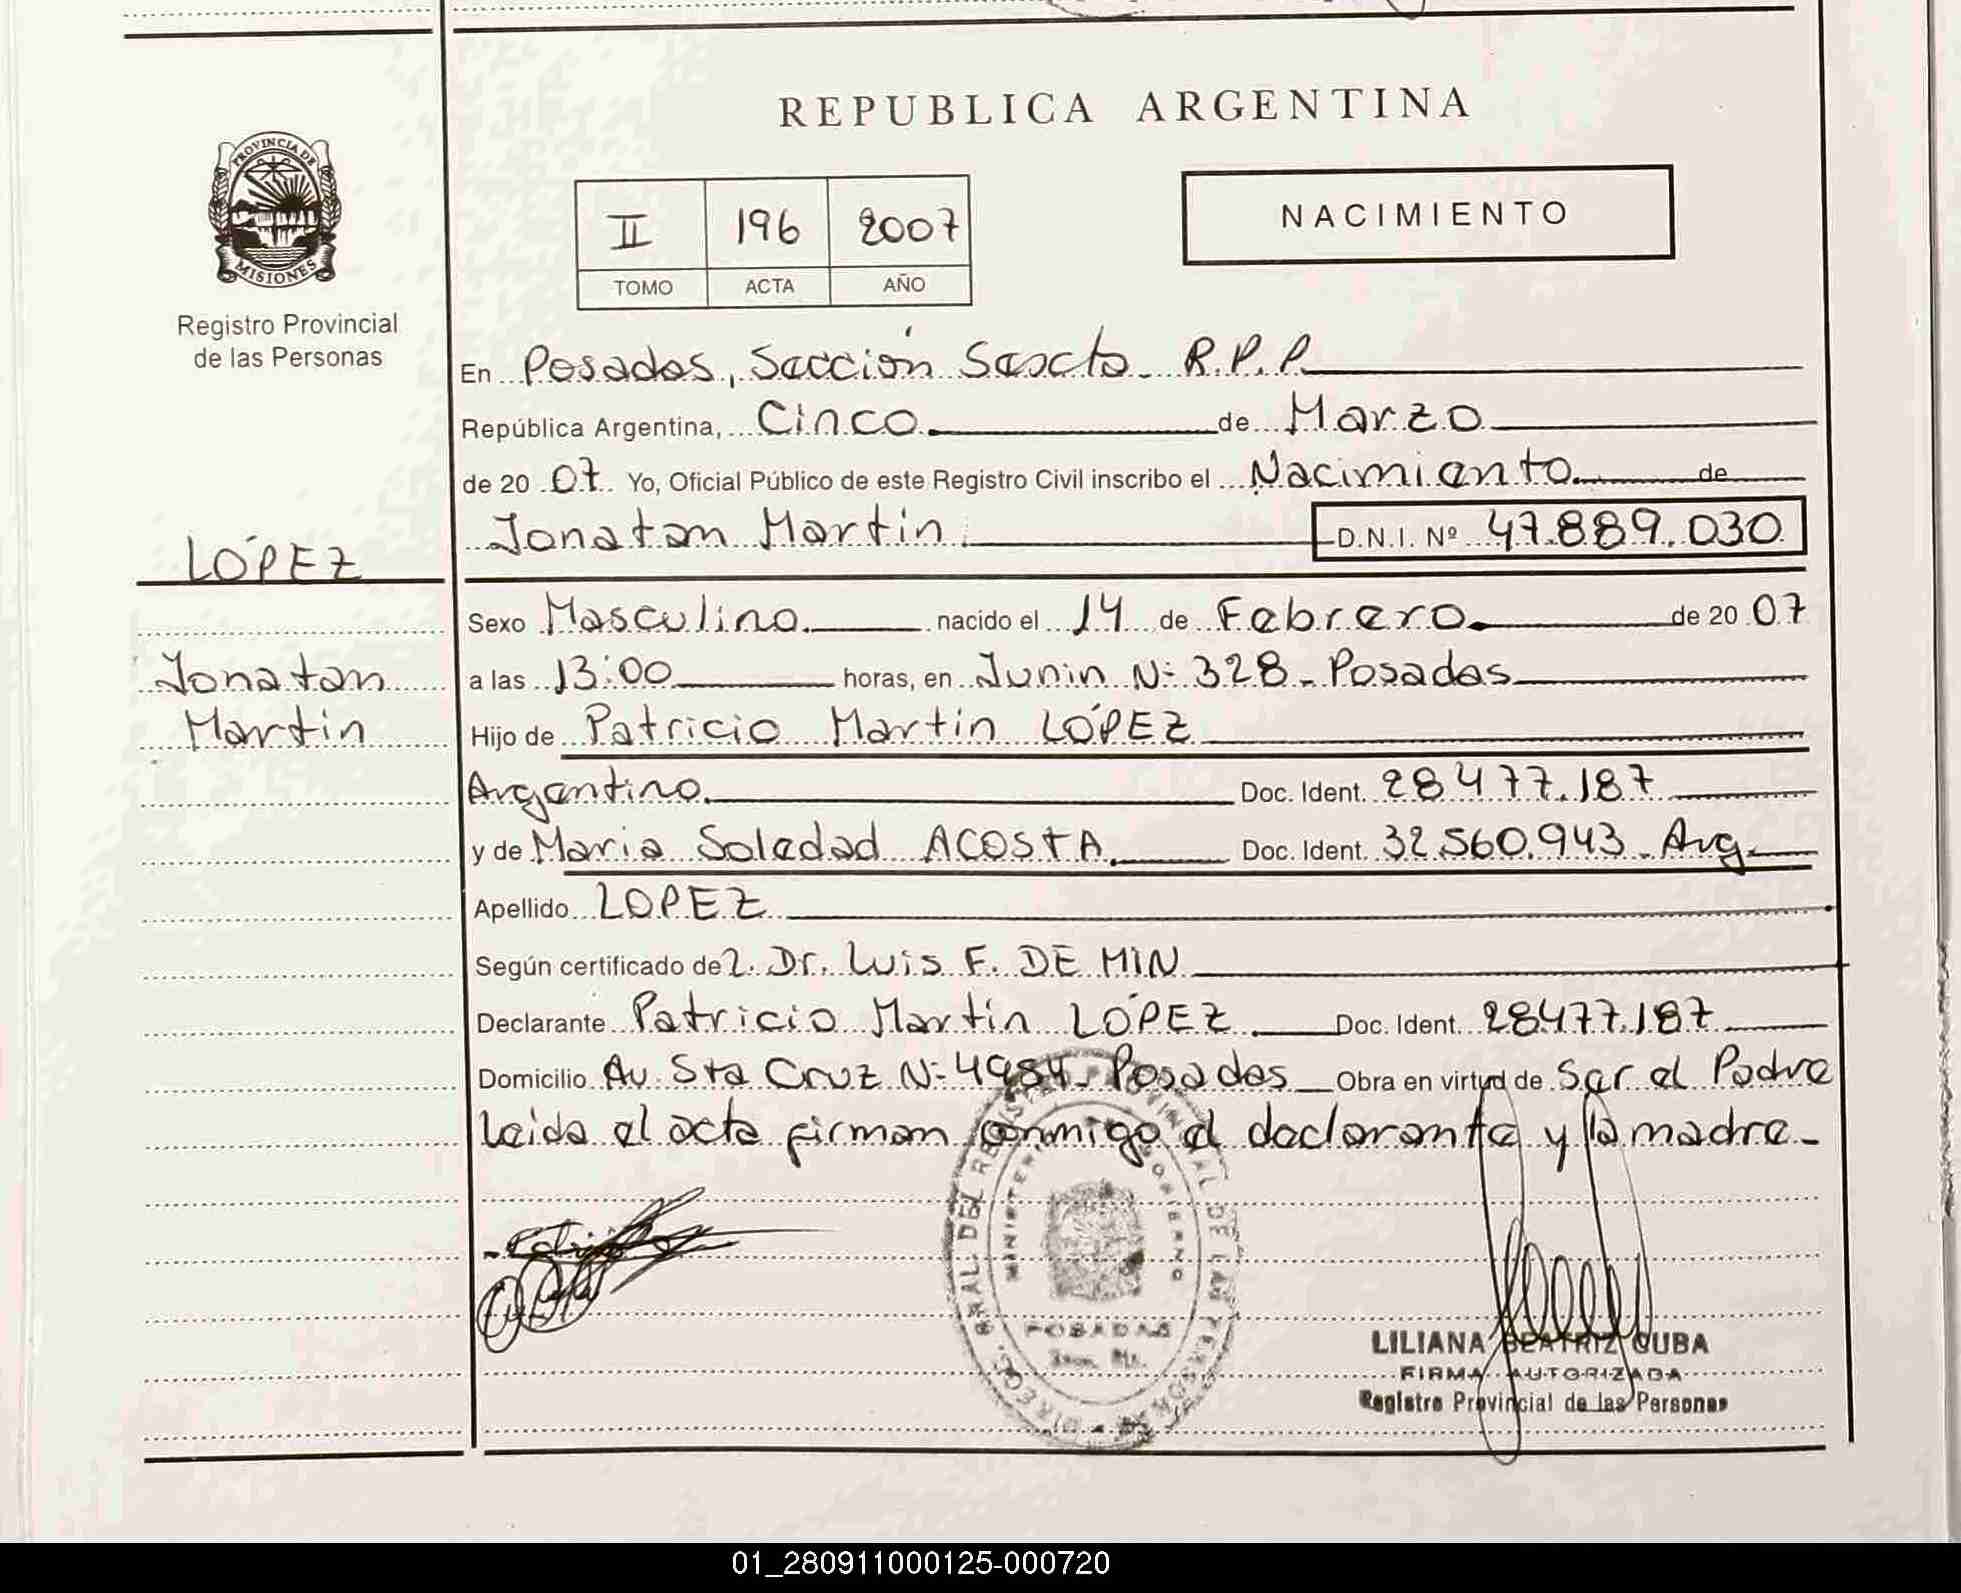 REPUBLICA ARGENTINA
PROVINCIA DE
MISIONES
Registro Provincial
de las Personas
II 196 2007
TOMO ACTA AÑO
NACIMIENTO
En Posadas, Sección Sexta R.P.P.
República Argentina, Cinco de Marzo
de 20 07 Yo, Oficial Público de este Registro Civil inscribo el Nacimiento de
Jonatan Martin D.N.I. Nº 47.889.030
LÓPEZ
Jonatan
Martin
Sexo Masculino nacido el 14 de Febrero de 20 07
a las 13:00 horas, en Junin Nº 328 - Posadas
Hijo de Patricio Martin LÓPEZ
Argentino Doc. Ident. 28477.187
y de Maria Soledad ACOSTA Doc. Ident. 32.560.943 - Arg.
Apellido LOPEZ
Según certificado de 2. Dr. Luis F. DE MIN
Declarante Patricio Martin LÓPEZ Doc. Ident. 28477.187
Domicilio Av. Sta Cruz Nº 4984 - Posadas Obra en virtud de Ser el Padre
Leida el acta firman conmigo el declarante y la madre -
DIREC. GRAL. DEL REGISTRO PROVINCIAL DE LAS PERSONAS
MINISTERIO GOBIERNO
POSADAS
LILIANA BEATRIZ CUBA
FIRMA AUTORIZADA
Registro Provincial de las Personas
01_280911000125-000720